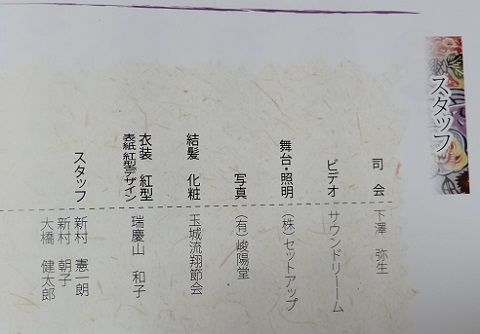 スタッフ
司 会 下澤 弥生
ビデオ サウンドリーム
舞台・照明 (株)セットアップ
写真 (有)峻陽堂
結髪 化粧 玉城流翔節会
衣装 紅型
表紙 紅型デザイン 瑞慶山 和子
スタッフ 新村 憲一朗
新村 朝子
大橋 健太郎